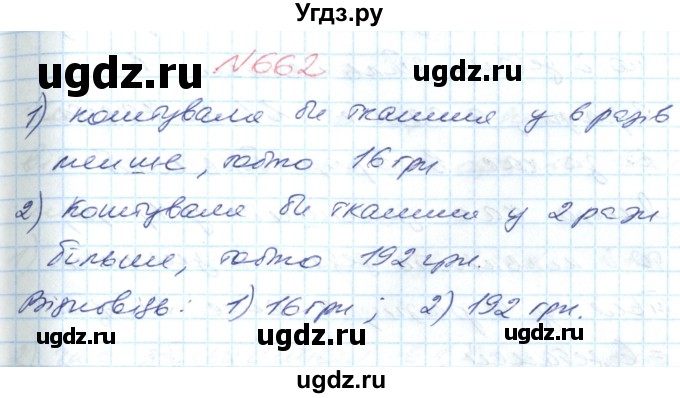 Угдз.ру
ugdz.ru ugdz.ru
№662
1) коштувала би тканина у 6 разів
менше, тобто 16 грн
ugdz.ru
2) Коштувала би тканина у 2 рази
більше, тобто 192 грн.
Відповідь: 1) 16 грн; 2) 192 грн.
ugdz.ru ugdz.ru ugdz.ru
ugdz.ru